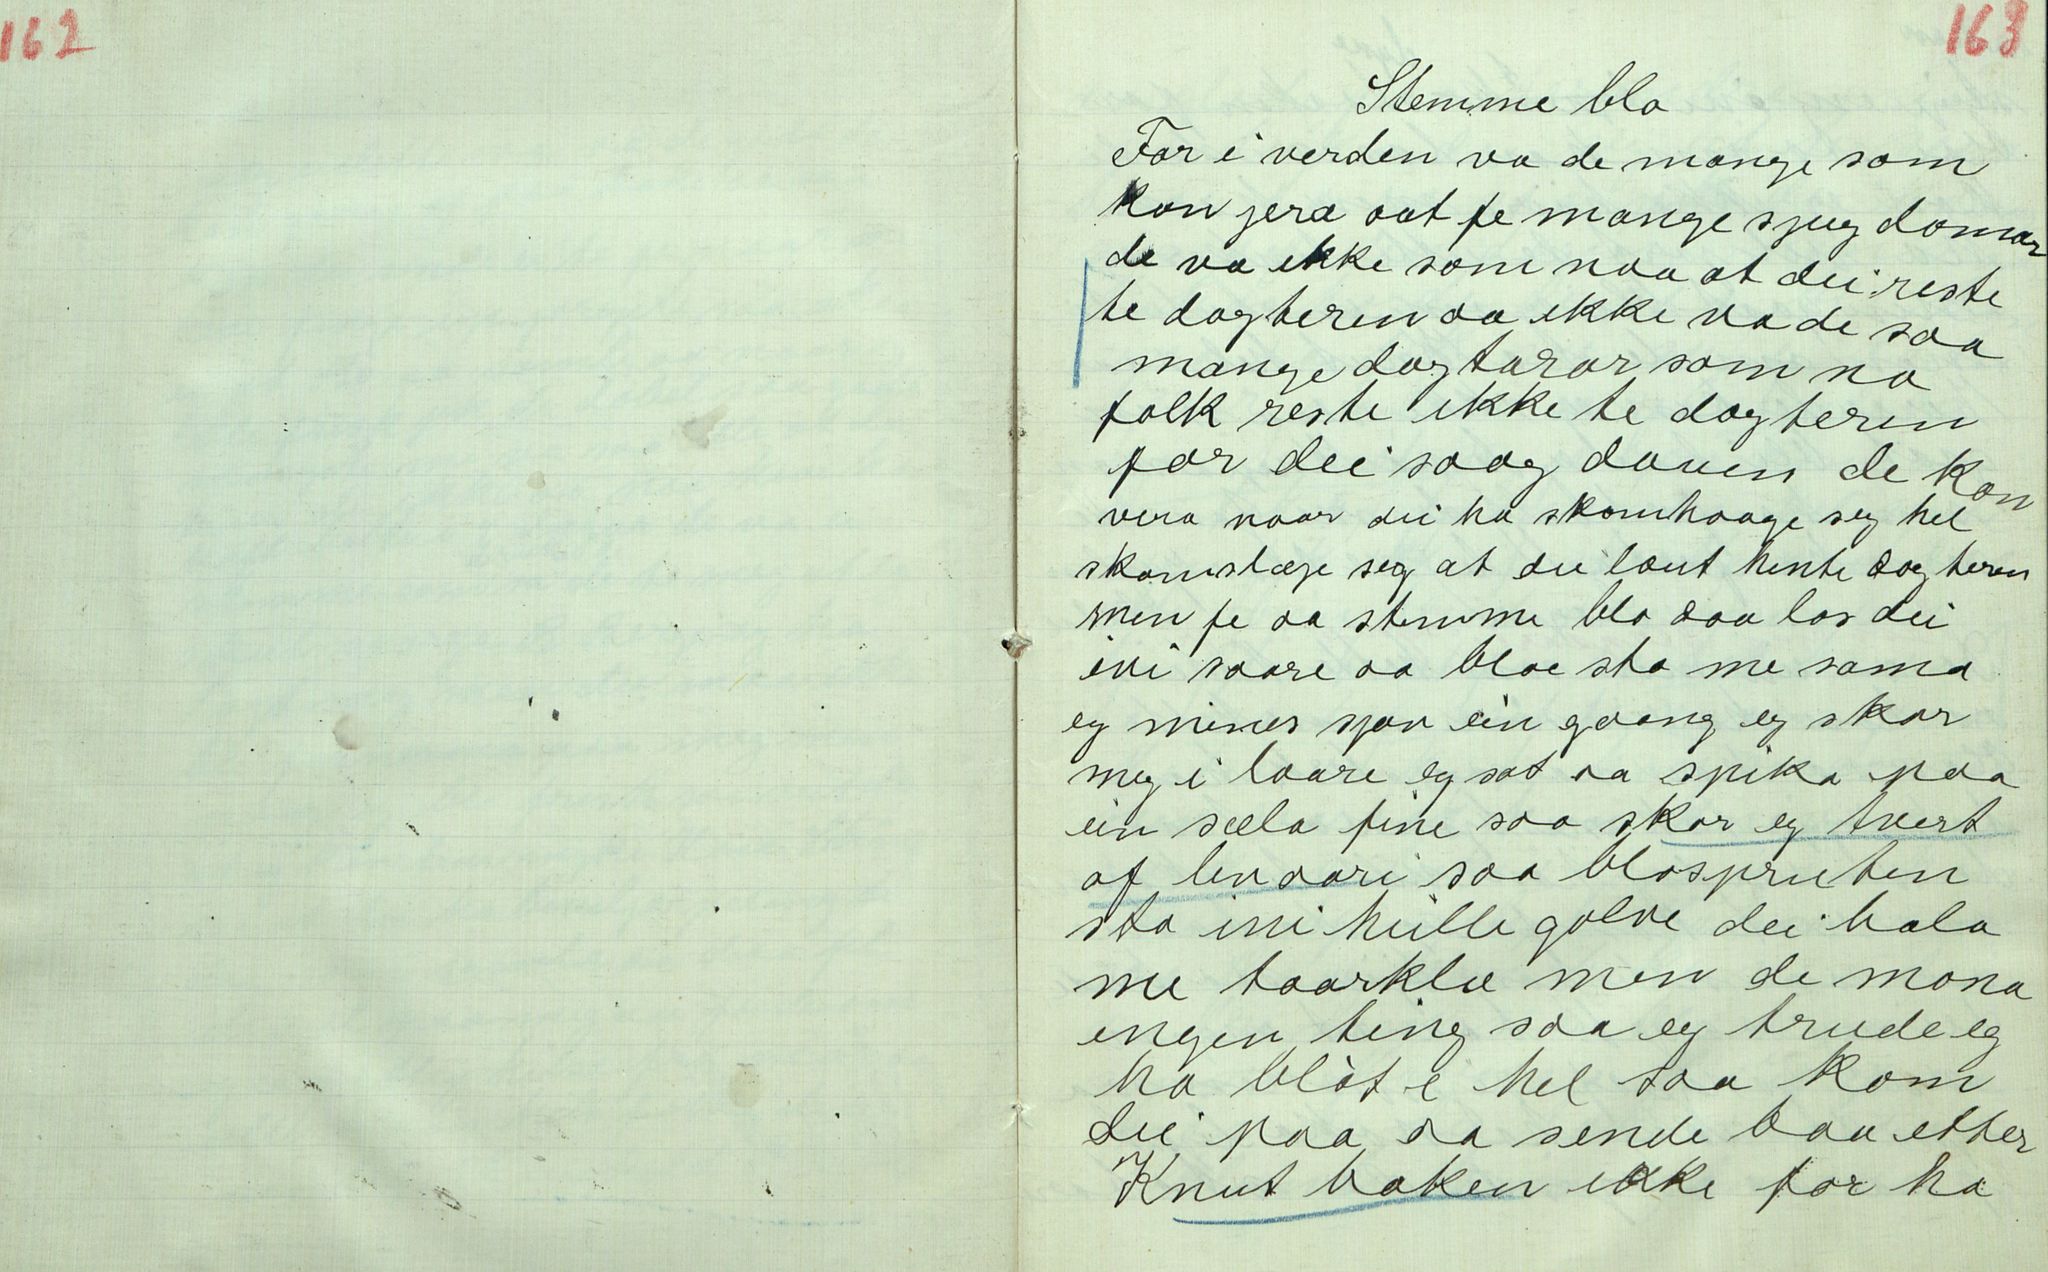 162
163
Stemme blo
For i verden va de mange som
kan jera aat fe mange sjug domar
de va ekke som naa at dei reste
te dagteren aa ekke va de saa
mange dagtarar som na
folk reste ekke te dagteren
for dei saag dauen de kan
vera naar dei ha skamhaage seg hel
skamslæge seg at dei laut hente dagteren
men fe aa stemme blo daa las dei
ivi saare aa bloe sta me sama
eg mines sjøv ein gaang eg skar
meg i laare eg sat aa spika paa
ein sæla pine saa skar eg tvert
af livaari saa blospruten
sta ini heille golve dei bala
me taarklæ men de mona
engen ting saa eg trude eg
ha blöt i hel saa kom
dei paa aa sende baa etter
Knut baken ekke for ha